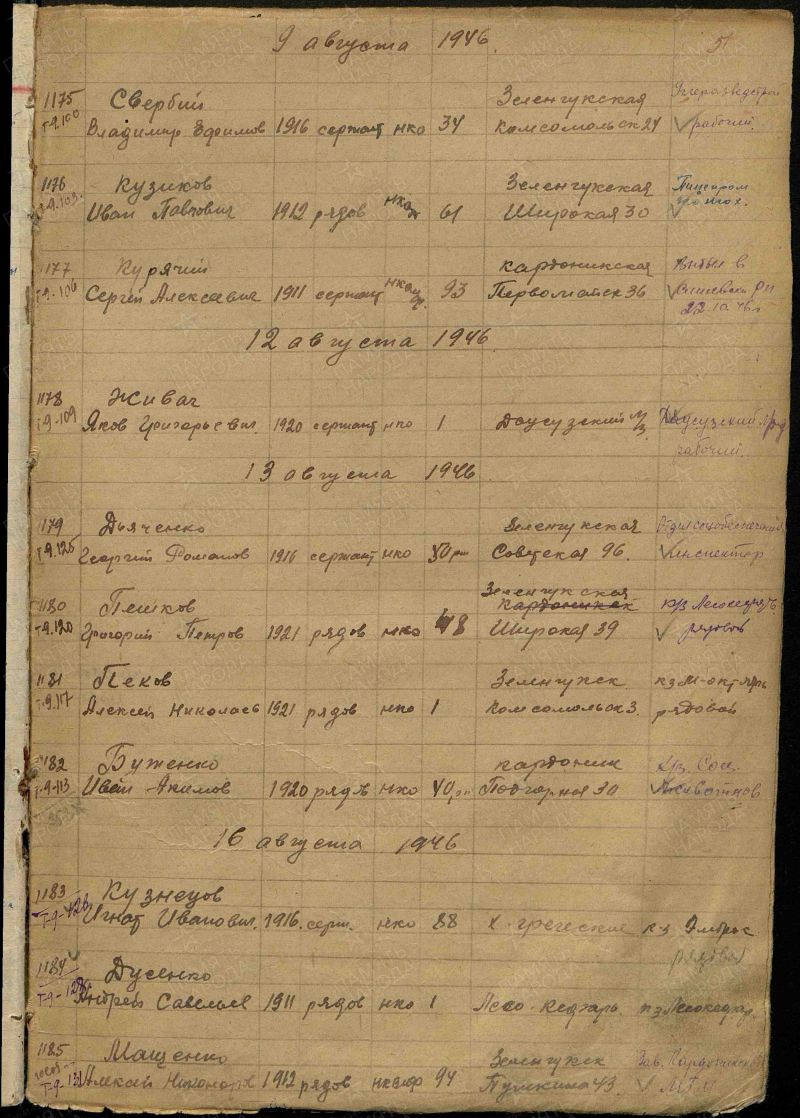 9 августа 1946
51
1175 Свербий Зеленчукская
Т-9.100 Владимир Ефимов 1916 сержант нко 34 Комсомольск 24 рабочий.
1176 Кузиков Зеленчукская Пищепром
Т-9.103. Иван Павлович 1912 рядов нко 61 Широкая 30
1177 Курячий кардоникская Выбыл в
Т-9-106 Сергей Алексеевич 1911 сержант нко 93 Первомайск 36
22-10 46г
12 августа 1946
1178 Живач
Т-9-109 Яков Григорьевич. 1920 сержант нко 1 Даусузский
рабочий.
13 августа 1946
1179 Дьяченко Зеленчукская Отдел соцобеспечения
Т-9.125 Георгий Романов 1916 сержант нко 50 рп Советская 96. инспектор
1180 Пешков Зеленчукская кардоникск к/з Лесокедрь
Т-9.120 Григорий Петров 1921 рядов нко 48 Широкая 39 рядовой
1181 Пеков Зеленчукск кз М-октябрь
Т-9.117 Алексей Николаев 1921 рядов нко 1 Комсомольск 3. рядовой
1182 Буженко кардоник к/з. Соц.
Т-9-113 Иван Акимов 1920 рядов нко 40 рп Подгорная 30
16 августа 1946
1183 Кузнецов
Игнат Иванович. 1916. серж. нко 88 х-греческие кз
рядовой
1184 Дусенко
Андрей Савельев 1911 рядов нко 1 Лесо-кедрарь
1185 Мащенко Зеленчукск Зав.
Т-9-131 Алексей 1912 рядов 94 Пушкина 43 МТМ